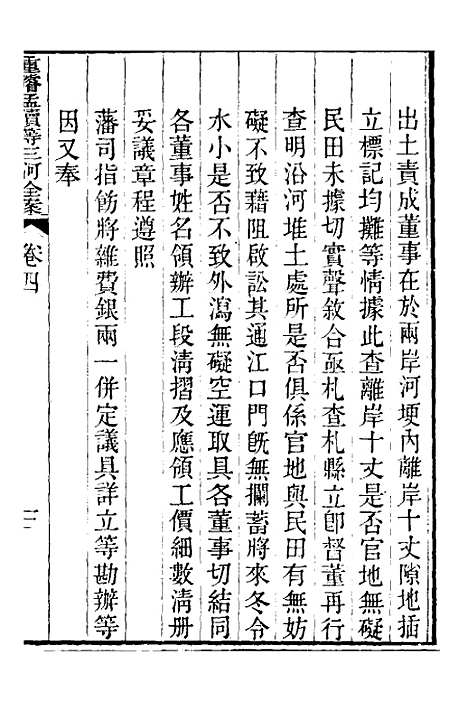 出土責成董事在於兩岸河埂內離岸十丈隙地插
立標記均攤等情據此查離岸十丈是否官地無礙
民田未據切實聲敘合亟札查札縣立卽督董再行
查明沿河堆土處所是否俱係官地與民田有無妨
礙不致藉阻啟訟其通江口門旣無攔蓄將來冬令
水小是否不致外瀉無礙空運取具各董事切結同
各董事姓名領辦工段淸摺及應領工價細數淸册
妥議章程遵照
藩司指飭將雜費銀兩一併定議具詳立等勘辦等
因又奉
重濬孟瀆等三河全案
卷四